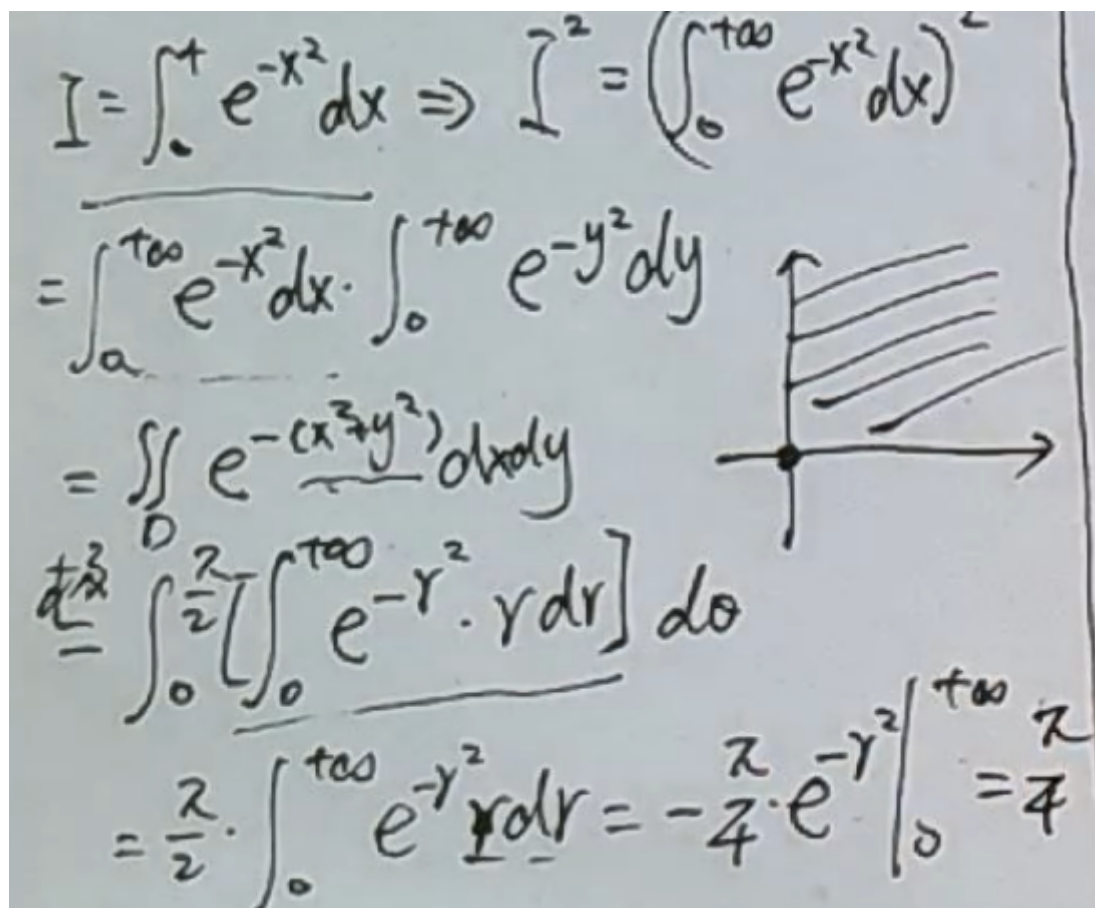 I = ∫₀⁺ e^{-x²} dx ⇒ I² = (∫₀^{+∞} e^{-x²} dx)²
= ∫₀^{+∞} e^{-x²} dx · ∫₀^{+∞} e^{-y²} dy
= ∬_D e^{-(x²+y²)} dxdy
= ∫₀^{π/2} [∫₀^{+∞} e^{-r²} · r dr] dθ
= π/2 · ∫₀^{+∞} e^{-r²} r dr = -π/4 · e^{-r²} |₀^{+∞} = π/4